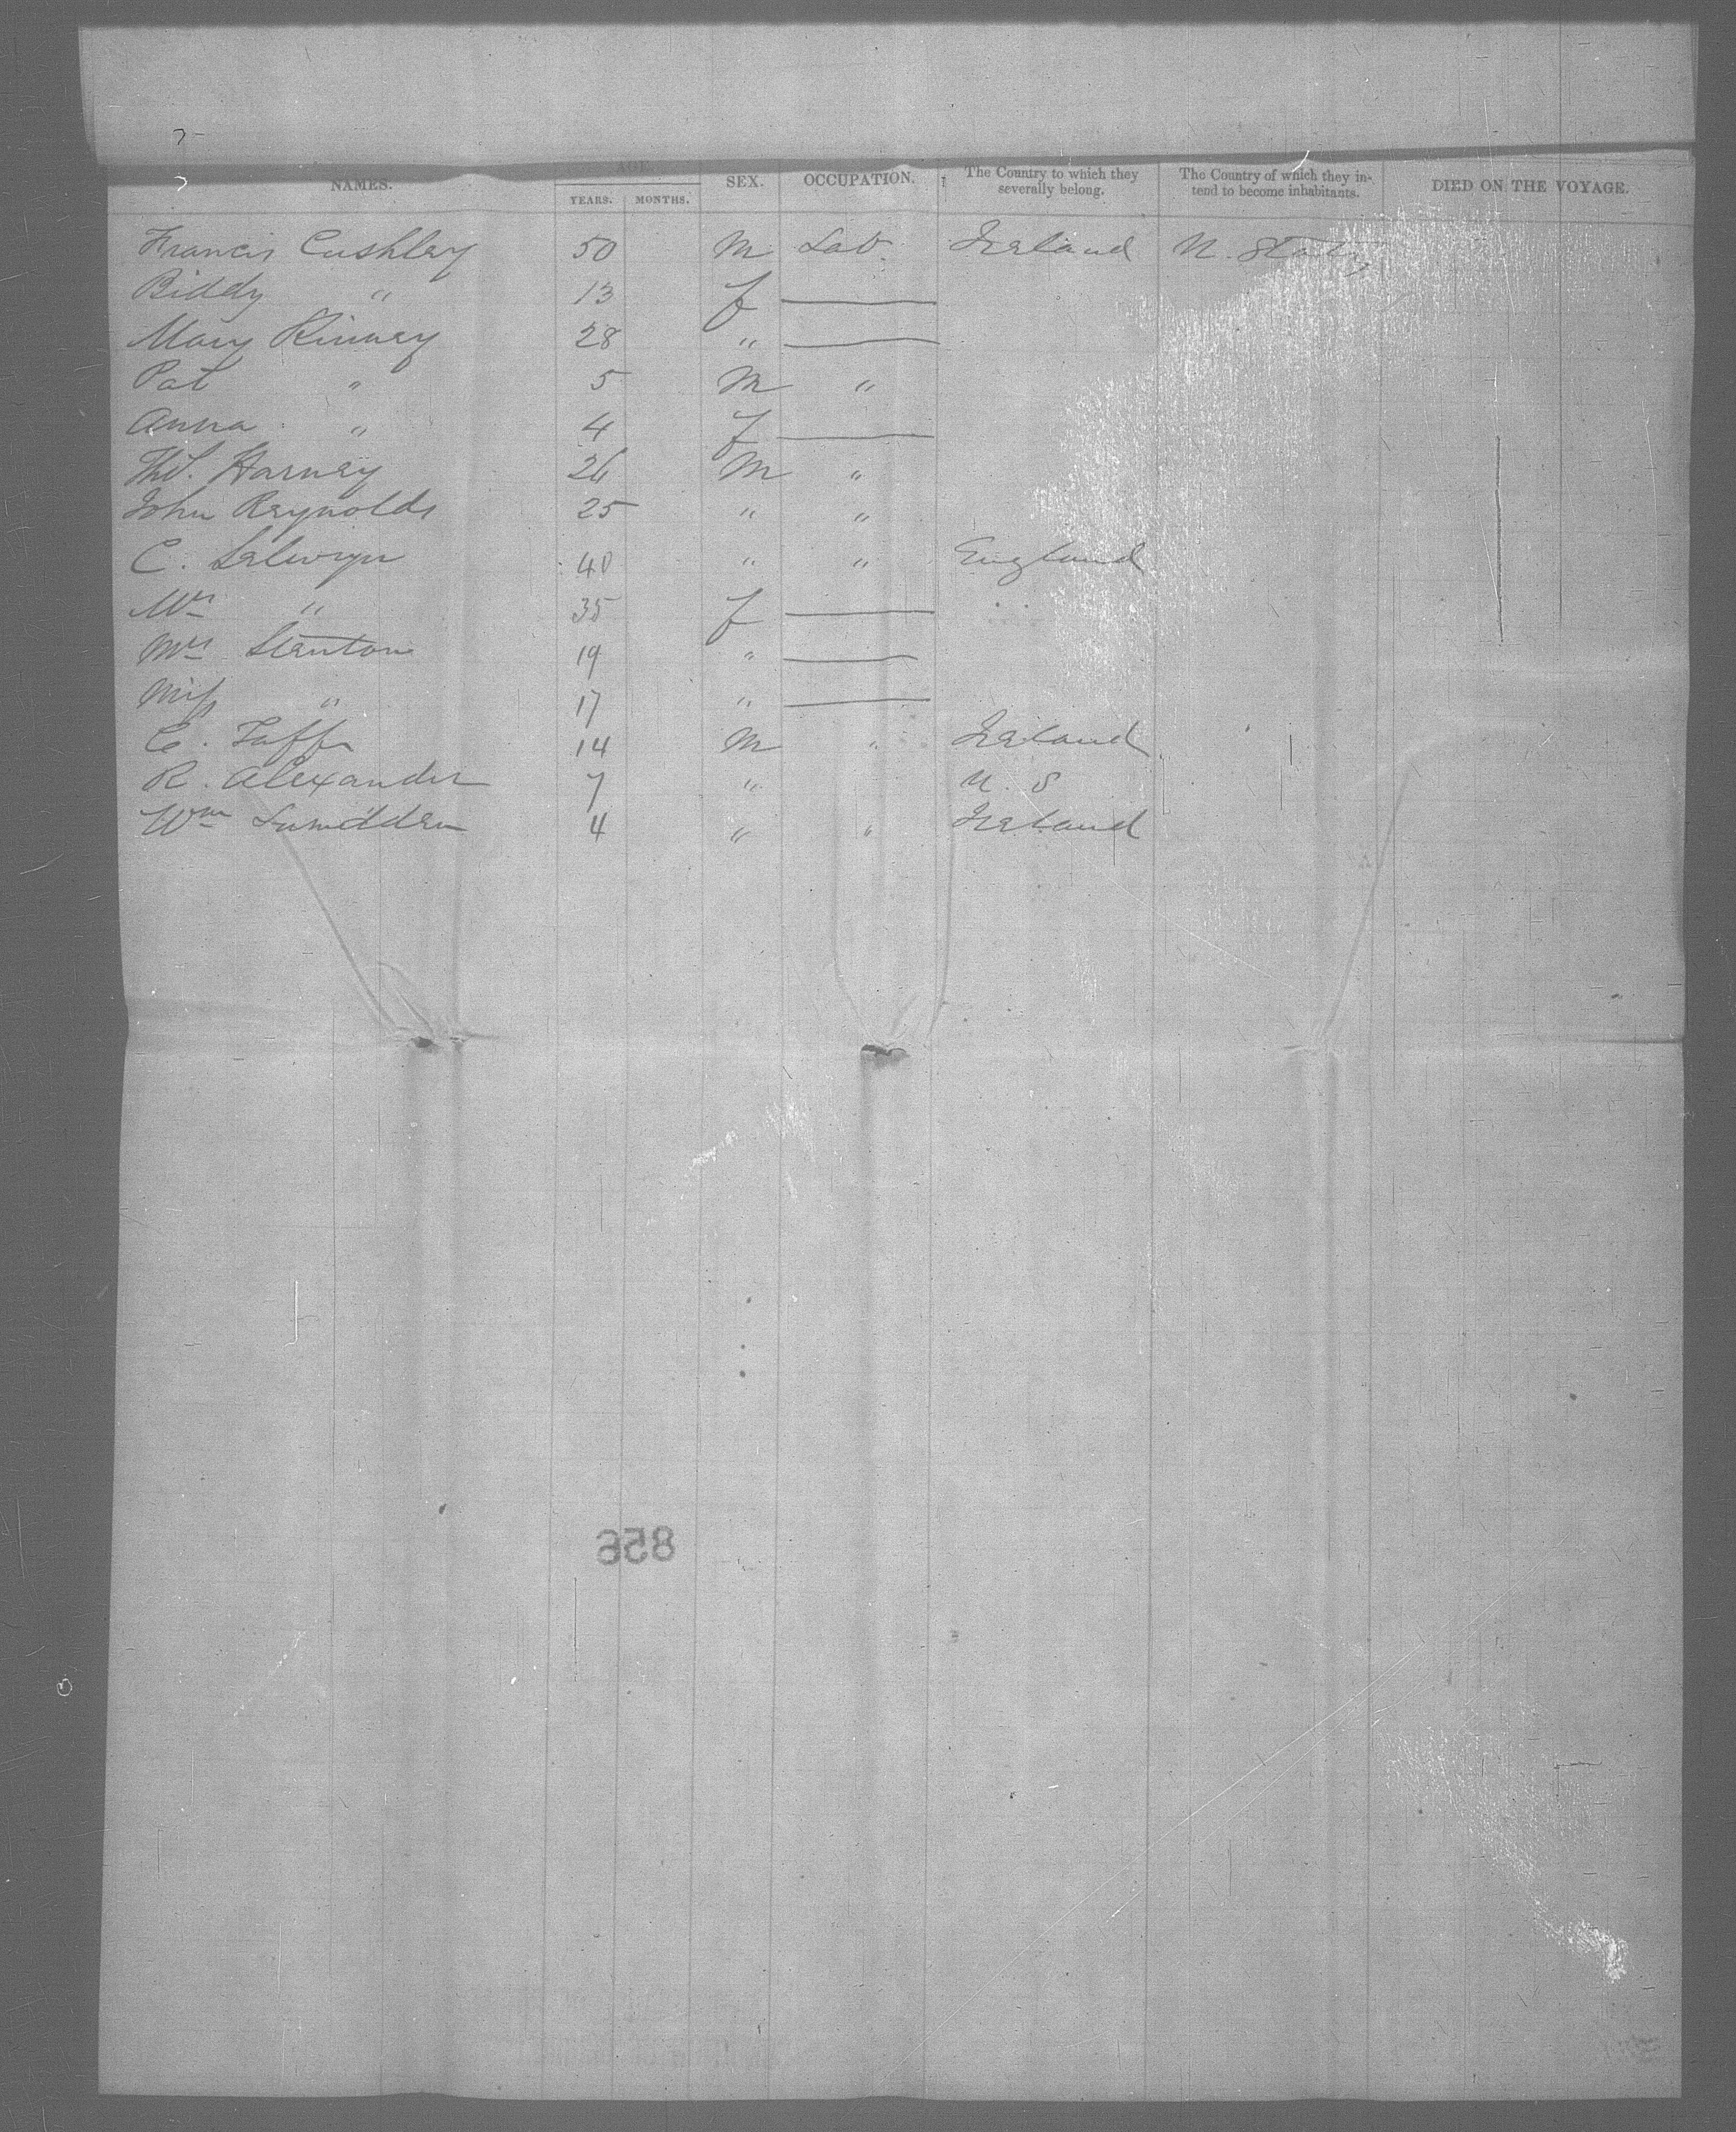 NAMES. AGE. SEX. OCCUPATION. The Country to which they severally belong. The Country of which they intend to become inhabitants. DIED ON THE VOYAGE.
YEARS. MONTHS.
Francis Cushley 50 M Lab. Ireland U. States
Biddy " 13 f
Mary Kinney 28 "
Pat " 5 M "
Anna " 4 f
Tho. Harney 26 M "
John Reynolds 25 " "
C. Selwyn 40 " " England
Mrs " 35 f
Mrs Stanton 19 "
Miss " 17 "
C. Taffe 14 M " Ireland
R. Alexander 7 " U. S
Wm 4 " " Ireland
856